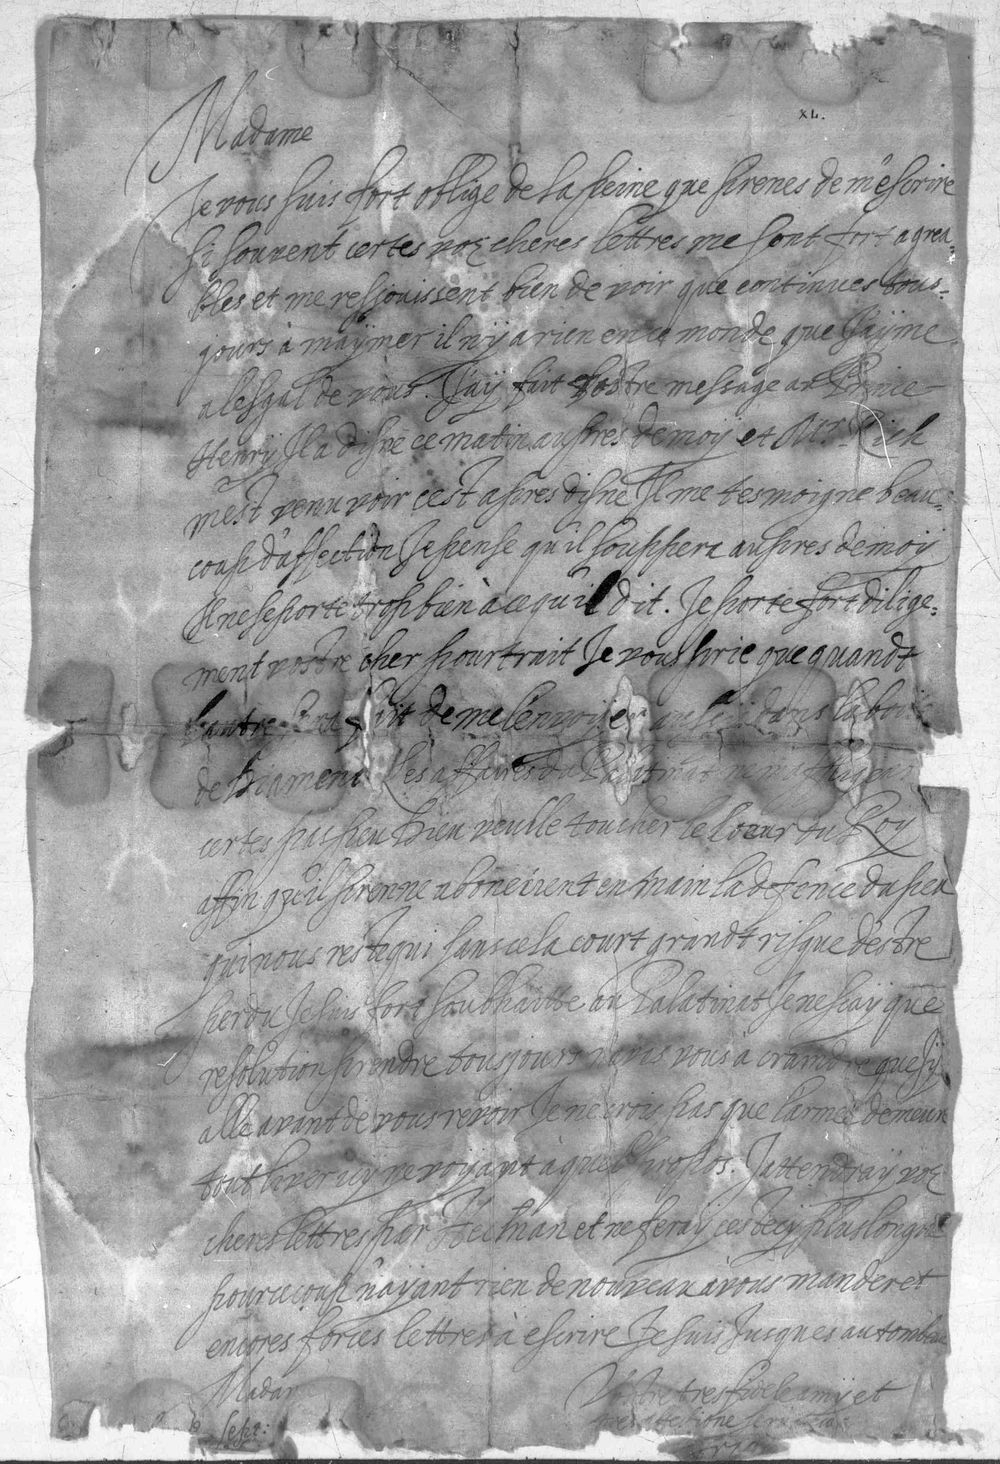 XL.
Madame
Je vous suis fort oblige de la peine que prenes de m'escrire
si souvent certes voz cheres lettres me sont fort agrea=
bles et me resjouissent bien de voir que continues tous=
jours à m'aymer il n'y a rien en ce monde que J'ayme
a l'esgal de vous. J'aÿ fait vostre message au Prince
Henrÿ Il a disné ce matin aupres de moy et Mr. Rich
m'est venu voir cest apres disne Il me tesmoigne beau=
coup d'affection Je pense qu'il souppera aupres de moy
Il ne se porte trop bien à ce qu'il dit. Je porte fort dilige=
ment vostre cher pourtrait Je vous prie que quandt
l'autre sera fait de me l'envoÿer aussi dans la boite
de Les affaires du Palatinat
certes pas peu Dieu veuille toucher le Coeur du Roy
affin qu'il prenne a bon en main la defence du peu
qui nous reste qui sans cela court grandt risque d'estre
perdu Je suis fort souhhaitte au Palatinat Je ne scay que
resolution prendre tousjours vous à craindre que sÿ
alle avant de vous revoir Je ne crois pas que l'armee demeure
tout l'iver icy ne voÿant à quel propos. J'attendraÿ voz
cheres lettres par et ne feraÿ ceste cy plus longue
pour ce coup n'aÿant rien de nouveau à vous mander et
encores forces lettres à escrire Je suis Jusques au tombeau
Madame
Vostre tres fidele amÿ et
tres affectioné
Sept: